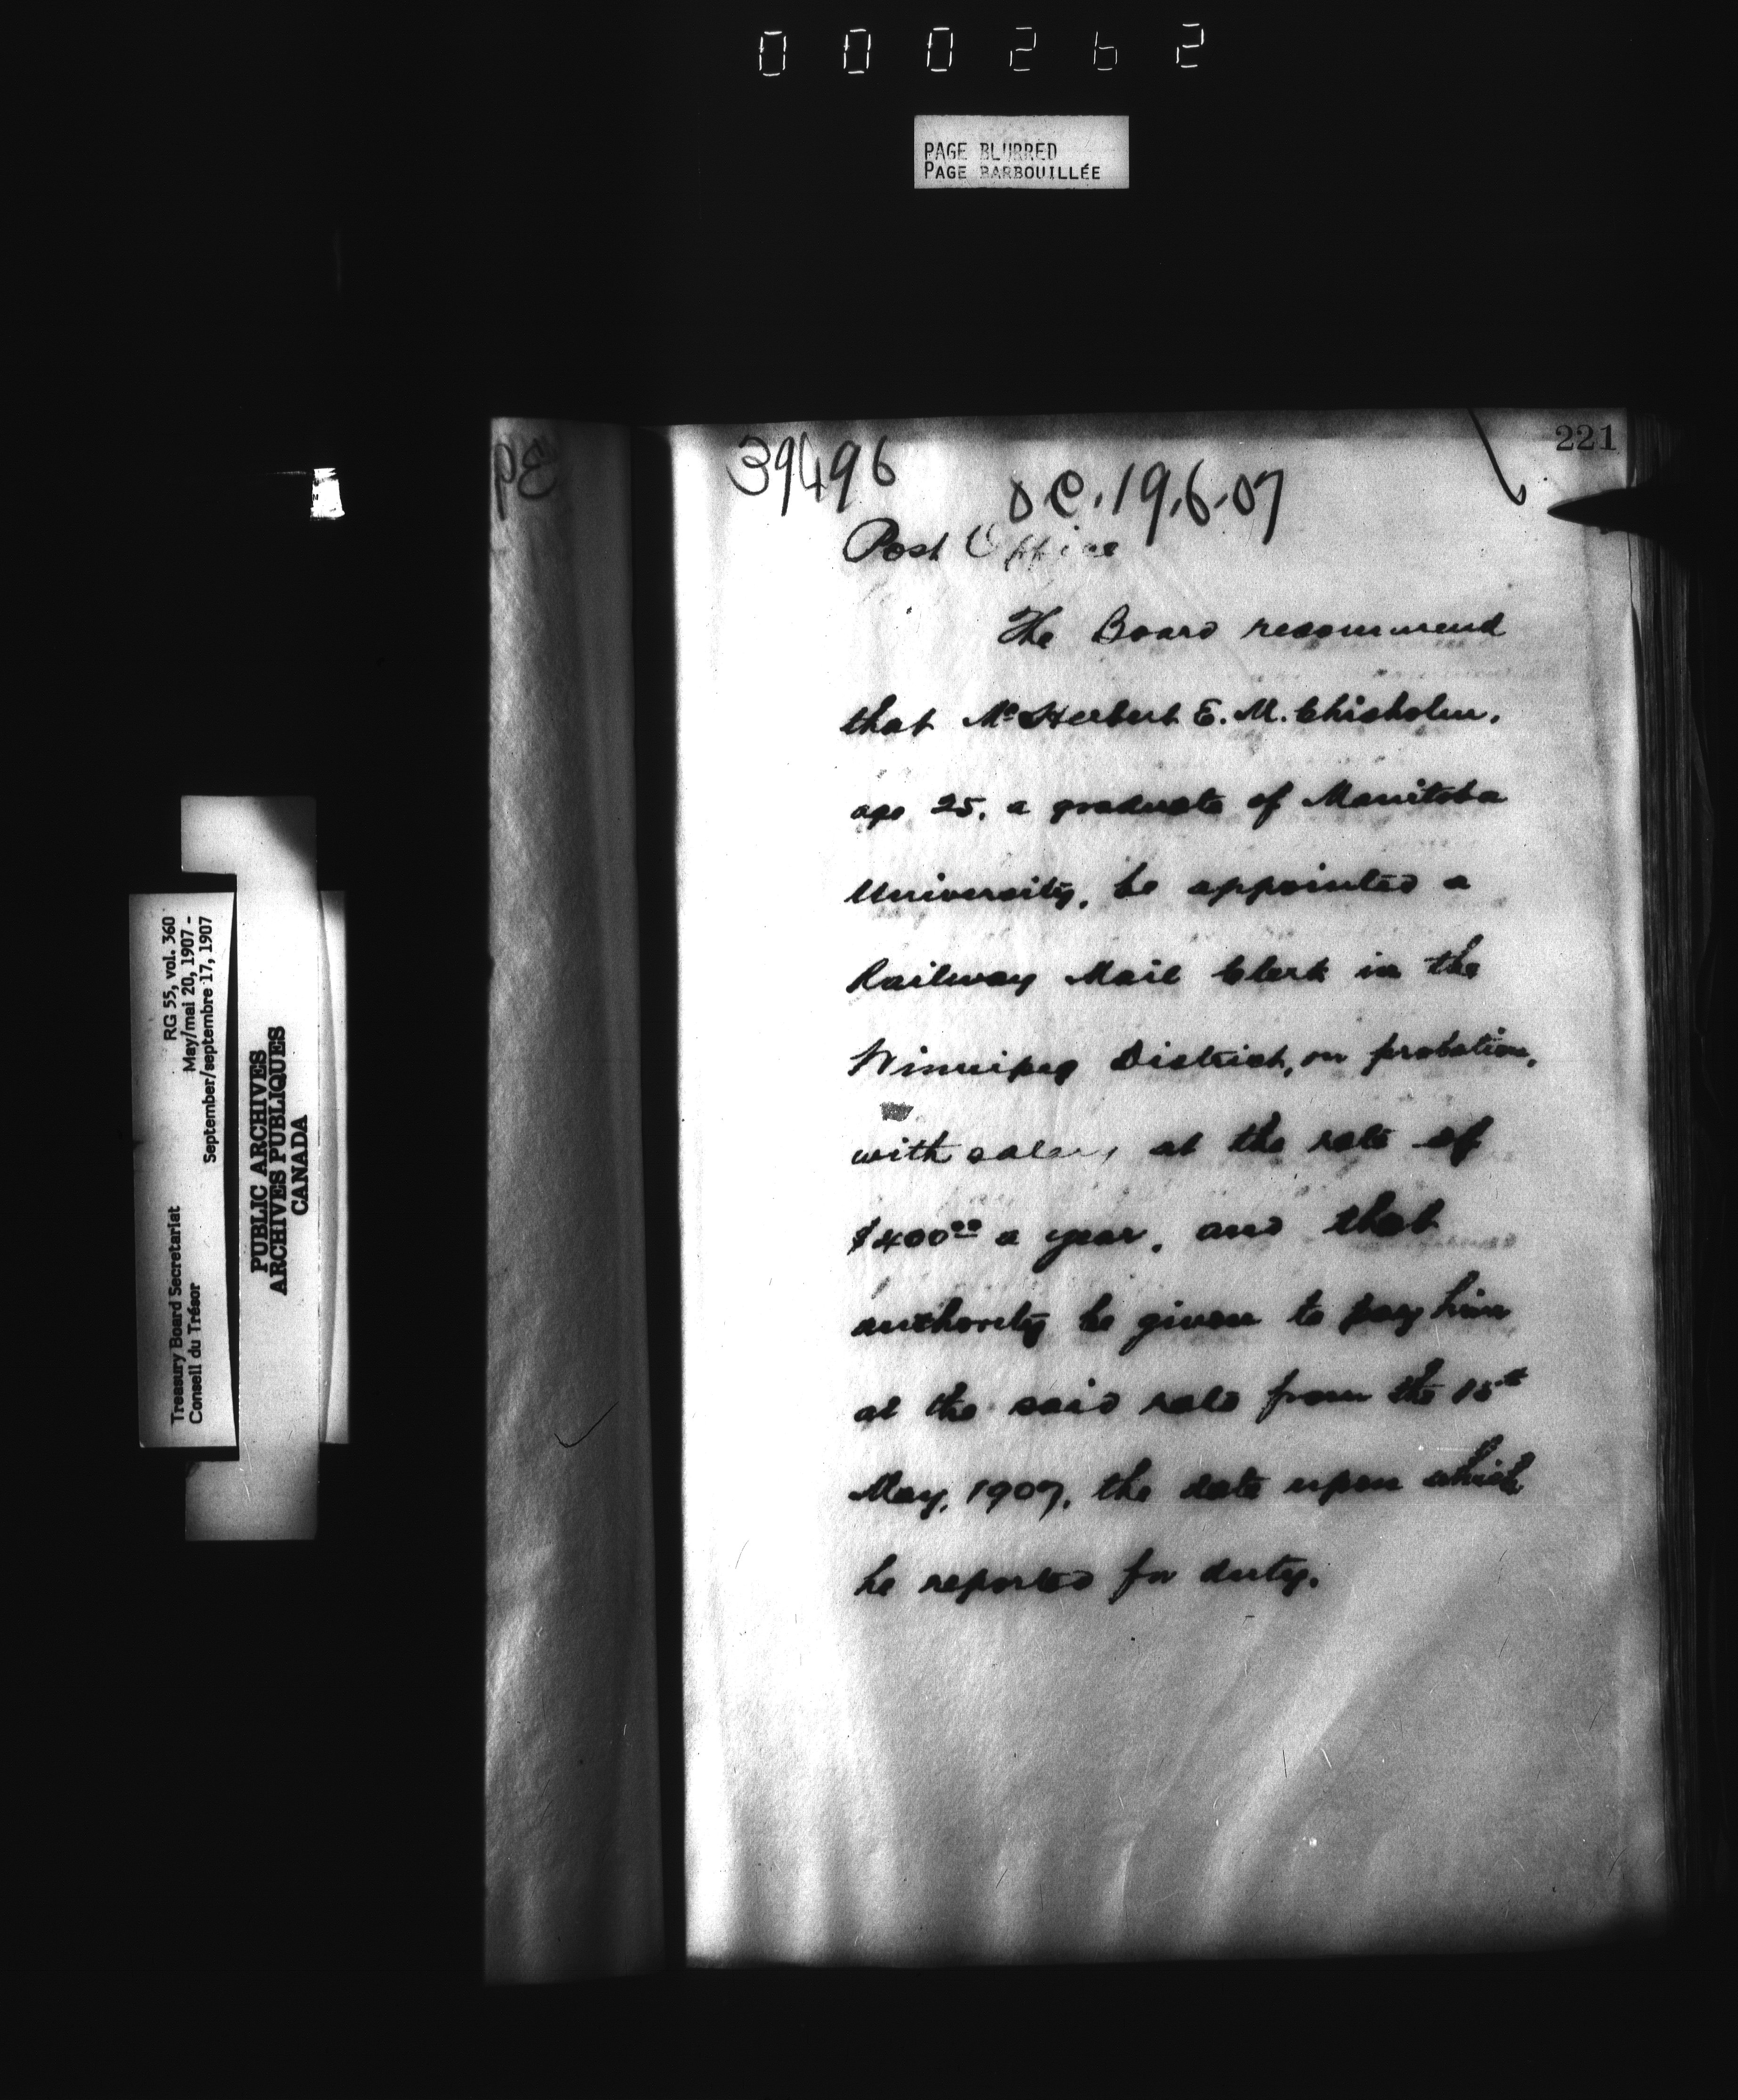 000262
PAGE BLURRED
PAGE BARBOUILLÉE
221
39496
O C. 19.6.07
Post Office
The Board recommend
that Mr Herbert E. M. Chisholm,
age 25, a graduate of Manitoba
University, be appointed a
Railway Mail Clerk in the
Winnipeg District, on probation,
with salary at the rate of
$400.00 a year, and that
authority be given to pay him
at the said rate from the 15th
May, 1907, the date upon which
he reported for duty.
RG 55, vol. 360
May/mai 20, 1907 -
September/septembre 17, 1907
Treasury Board Secretariat
Conseil du Trésor
PUBLIC ARCHIVES
ARCHIVES PUBLIQUES
CANADA